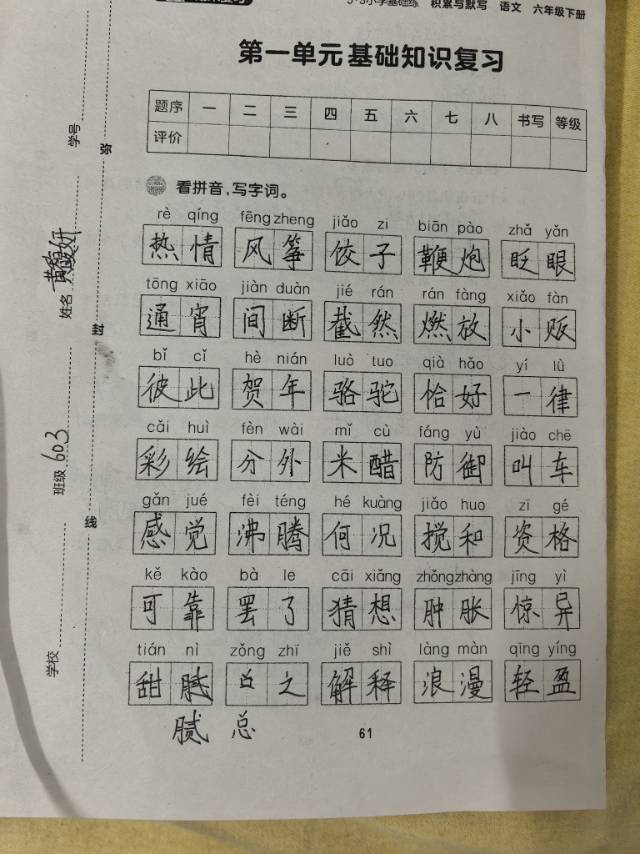 5·3小学基础练 积累与默写 语文 六年级下册
第一单元 基础知识复习
题序 一 二 三 四 五 六 七 八 书写 等级
评价
看拼音,写字词。
rè qíng fēng zheng jiǎo zi biān pào zhǎ yǎn
热情 风筝 饺子 鞭炮 眨眼
tōng xiāo jiàn duàn jié rán rán fàng xiǎo fàn
通宵 间断 截然 燃放 小贩
bǐ cǐ hè nián luò tuo qià hǎo yí lǜ
彼此 贺年 骆驼 恰好 一律
cǎi huì fèn wài mǐ cù fáng yù jiào chē
彩绘 分外 米醋 防御 叫车
gǎn jué fèi téng hé kuàng jiǎo huo zī gé
感觉 沸腾 何况 搅和 资格
kě kào bà le cāi xiǎng zhǒng zhàng jīng yì
可靠 罢了 猜想 肿胀 惊异
tián nì zǒng zhī jiě shì làng màn qīng yíng
甜腻 之 解释 浪漫 轻盈
腻 总
61
学校 班级 603 姓名 学号
弥 封 线